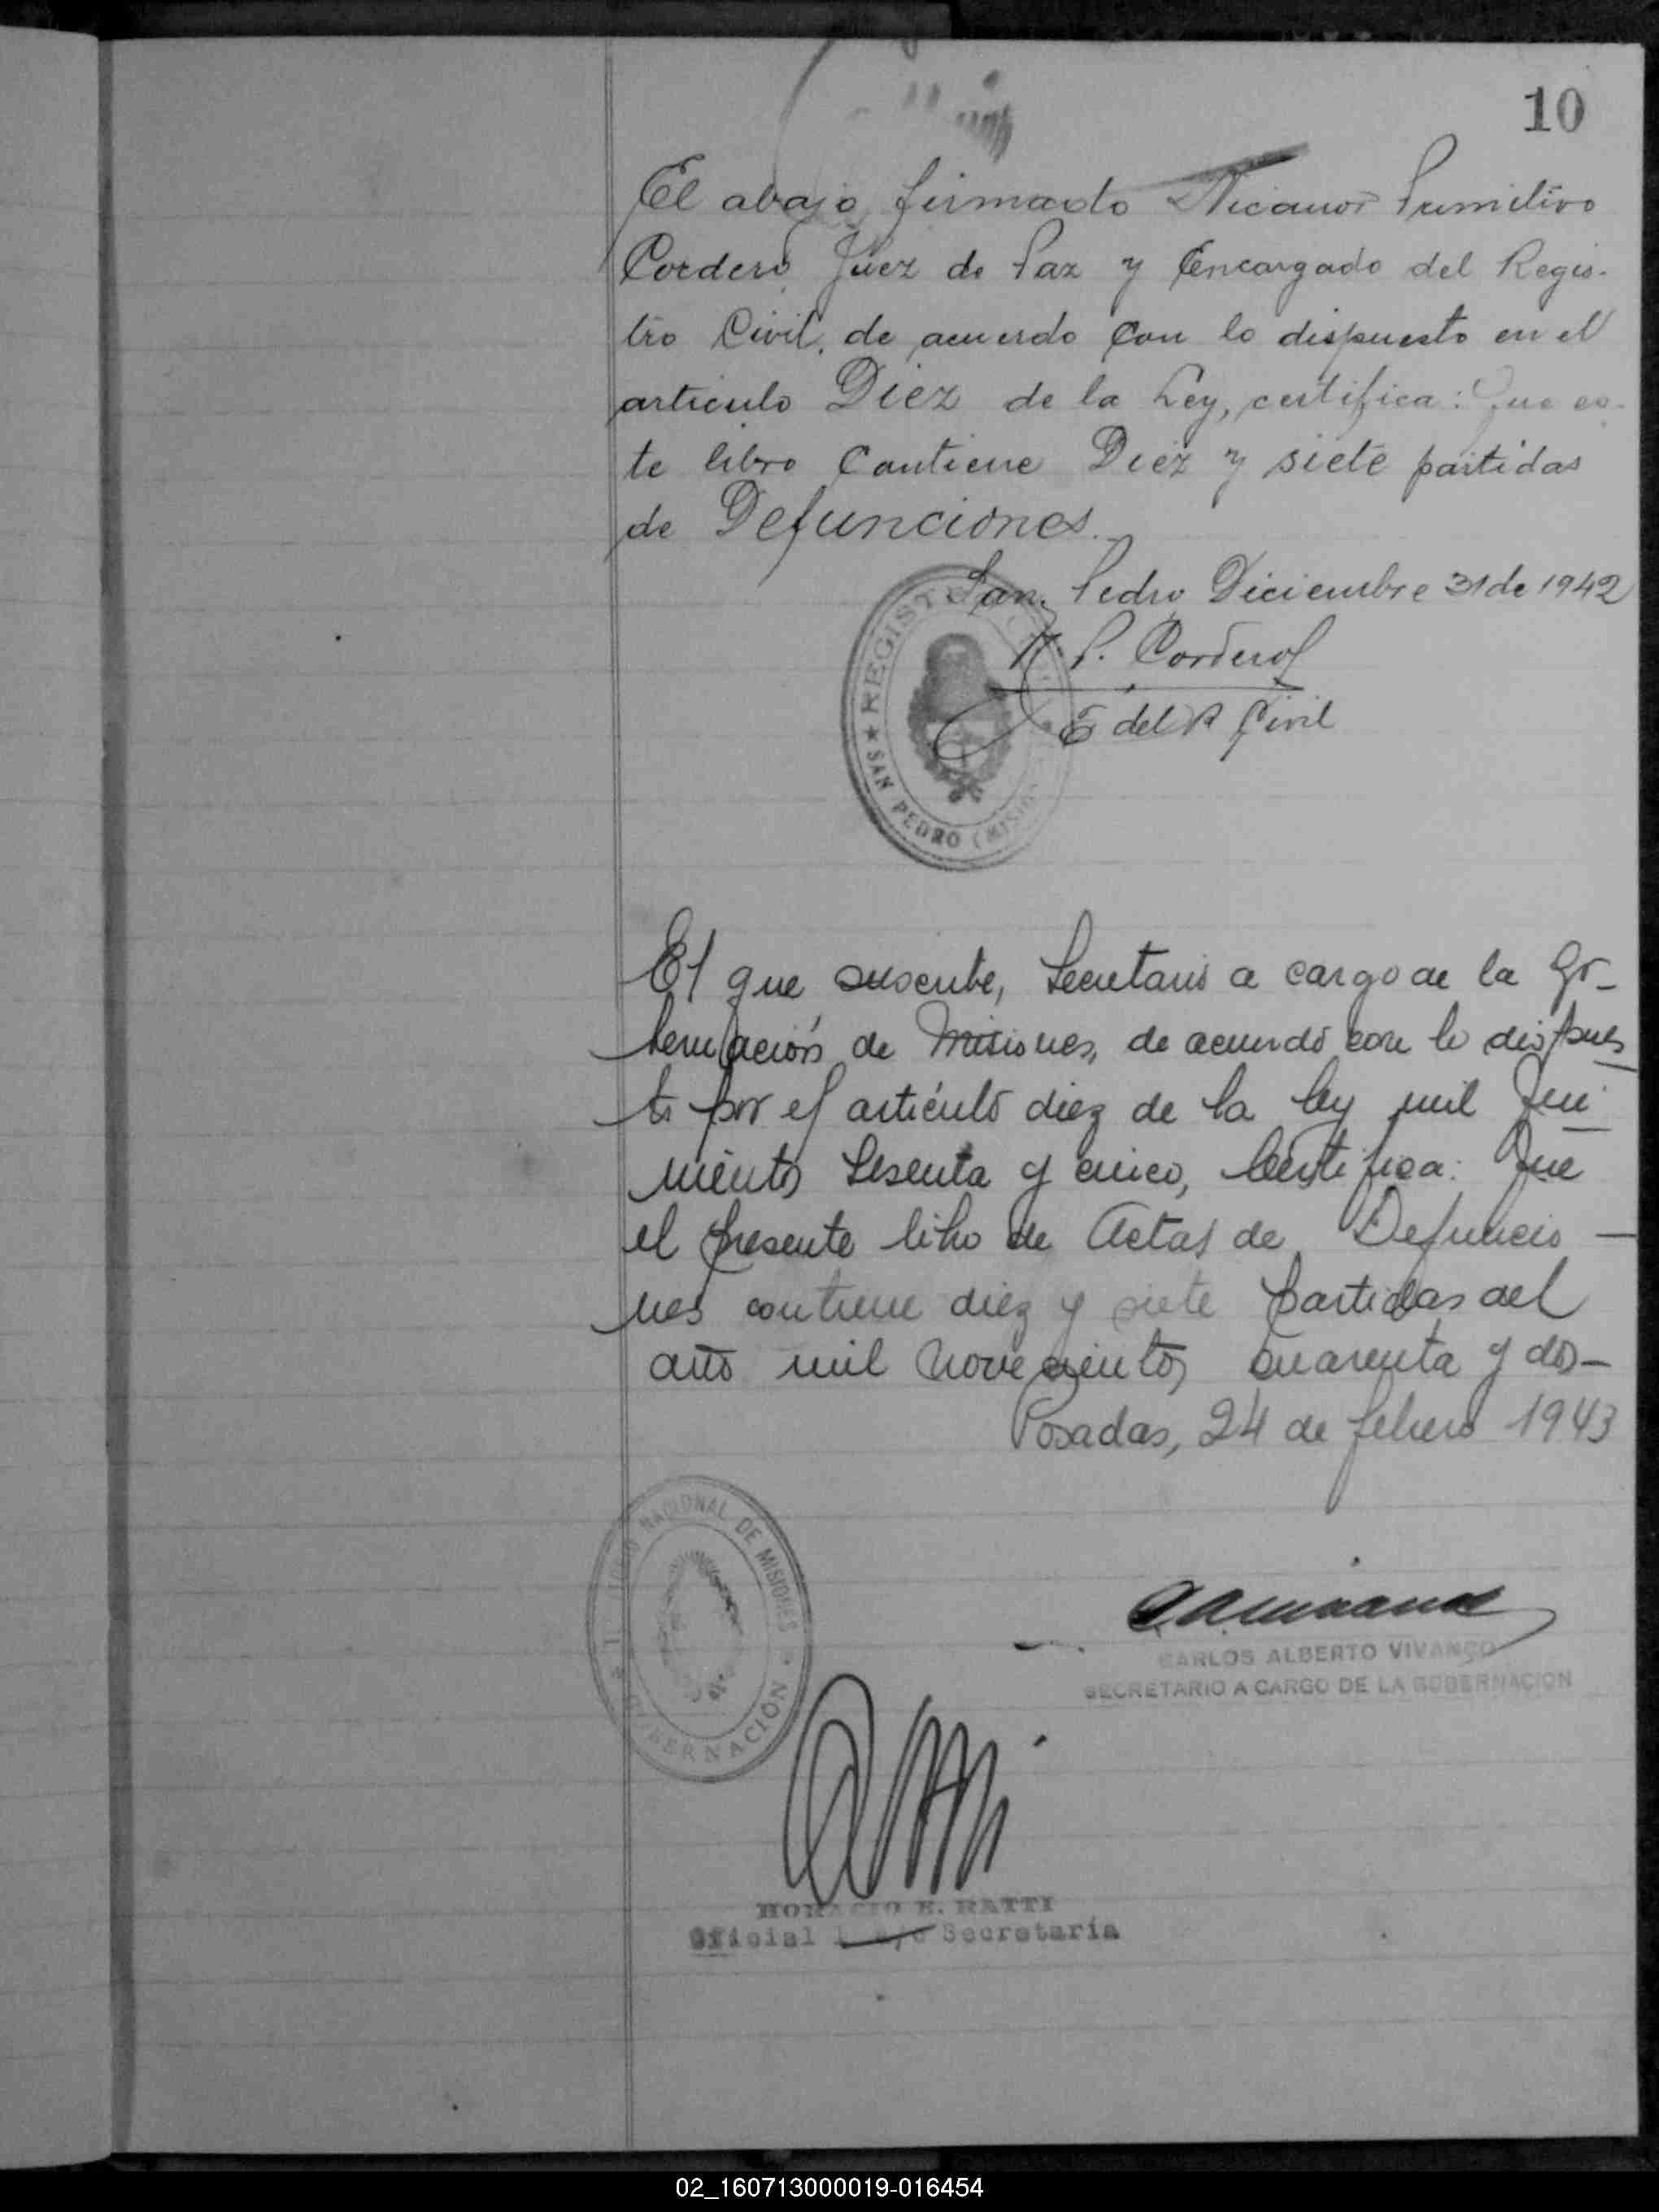 10
El abajo firmado Nicanor Primitivo
Cordero, Juez de Paz y Encargado del Regis-
tro Civil, de acuerdo con lo dispuesto en el
articulo Diez de la Ley, certifica: Que es-
te libro Contiene Diez y siete partidas
de Defunciones.
San Pedro Diciembre 31 de 1942
N. P. Cordero
E del R Civil
REGISTRO
★ SAN PEDRO (MISIO
El que suscribe, Secretario a cargo de la Go-
bernación de Misiones, de acuerdo con lo dispues
to por el artículo diez de la ley mil qui
nientos sesenta y cinco, Certifica: Que
el presente libro de Actas de Defuncio-
nes contiene diez y siete partidas del
año mil novecientos cuarenta y dos-
Posadas, 24 de febrero 1943
NACIONAL DE MISIONES
GOBERNACIÓN
CARLOS ALBERTO VIVANCO
SECRETARIO A CARGO DE LA GOBERNACION
HORACIO E. RATTI
Oficial 1 a/c Secretaría
02_160713000019-016454